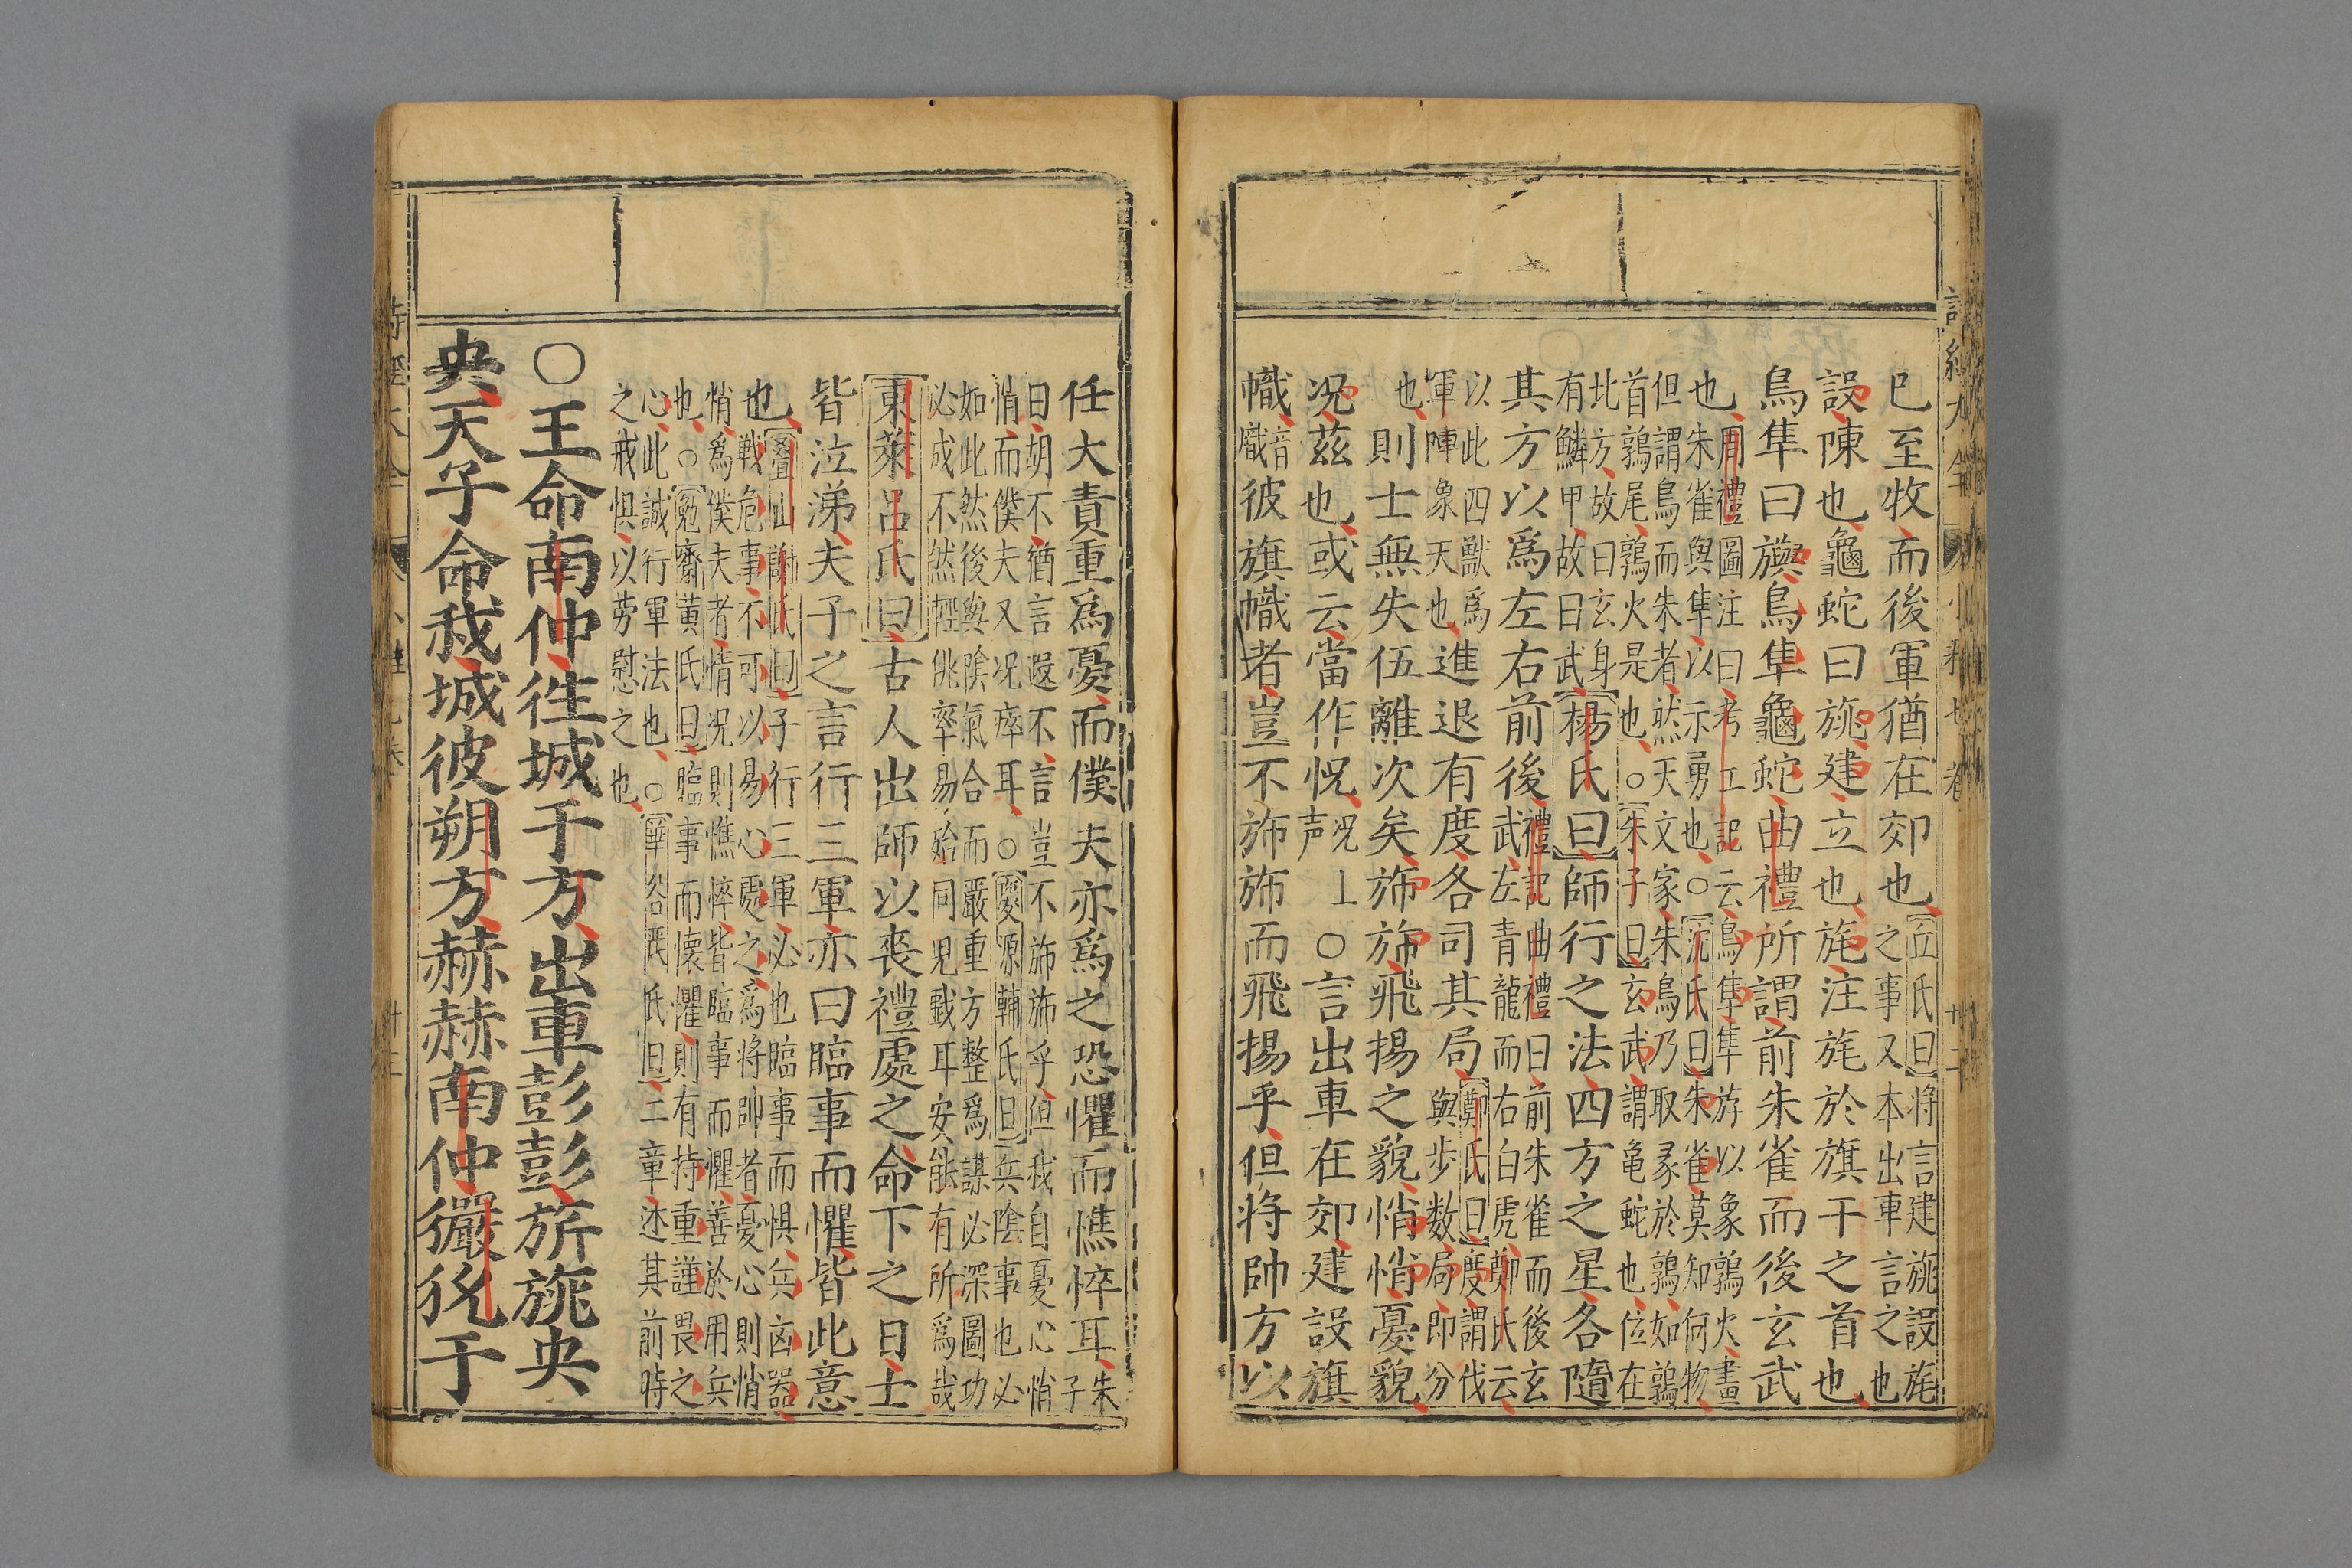 已至牧而後軍猶在郊也丘氏曰將言建旐設旄之事又本出車言之也
設陳也龜蛇曰旐建立也旄注旄於旗干之首也
鳥隼曰旟鳥隼龜蛇曲禮所謂前朱雀而後玄武
也周禮圖注曰考工記云鳥隼隼斿以象鶉火畫朱雀與隼以示勇也○沉氏曰朱雀莫知何物
但謂鳥而朱者然天文家朱鳥乃取象於鶉如鶉首鶉尾鶉火是也○朱子曰玄武謂亀蛇也位在
北方故曰玄身有鱗甲故曰武楊氏曰師行之法四方之星各隨
其方以爲左右前後禮記曲禮曰前朱雀而後玄武左青龍而右白虎鄭氏云
以此四獸爲軍陣象天也進退有度各司其局鄭氏曰度謂伐與歩数局即分
也則士無失伍離次矣斾斾飛揚之貌悄悄憂貌
况茲也或云當作怳况上声○言出車在郊建設旗
幟音熾彼旗幟者豈不斾斾而飛揚乎但将帥方以
任大責重爲憂而僕夫亦爲之恐懼而憔悴耳朱子
曰胡不猶言遐不言豈不斾斾乎但我自憂心悄悄而僕夫又况瘁耳○慶源輔氏曰兵陰事也必
如此然後與陰氣合而嚴重方整爲謀必深圖功必成不然輕佻率易殆同兒戱耳安能有所爲哉
東萊呂氏曰古人出師以喪禮處之命下之日士
皆泣涕夫子之言行三軍亦曰臨事而懼皆此意
也疊山謝氏曰子行三軍必也臨事而惧兵凶器戰危事不可以易心處之爲将帥者憂心則悄
悄爲僕夫者情况則憔悴皆臨事而懼善於用兵也○勉齋黃氏曰臨事而懷懼則有持重謹畏之
心此誠行軍法也○華谷嚴氏曰二章述其前時之戒惧以劳慰之也
○王命南仲徃城于方出車彭彭旂旐央
央天子命我城彼朔方赫赫南仲玁狁于